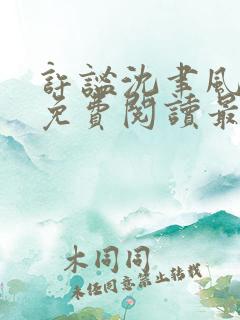 許謐沈聿風
免費閱讀最
木同同
未經同意禁止轉載